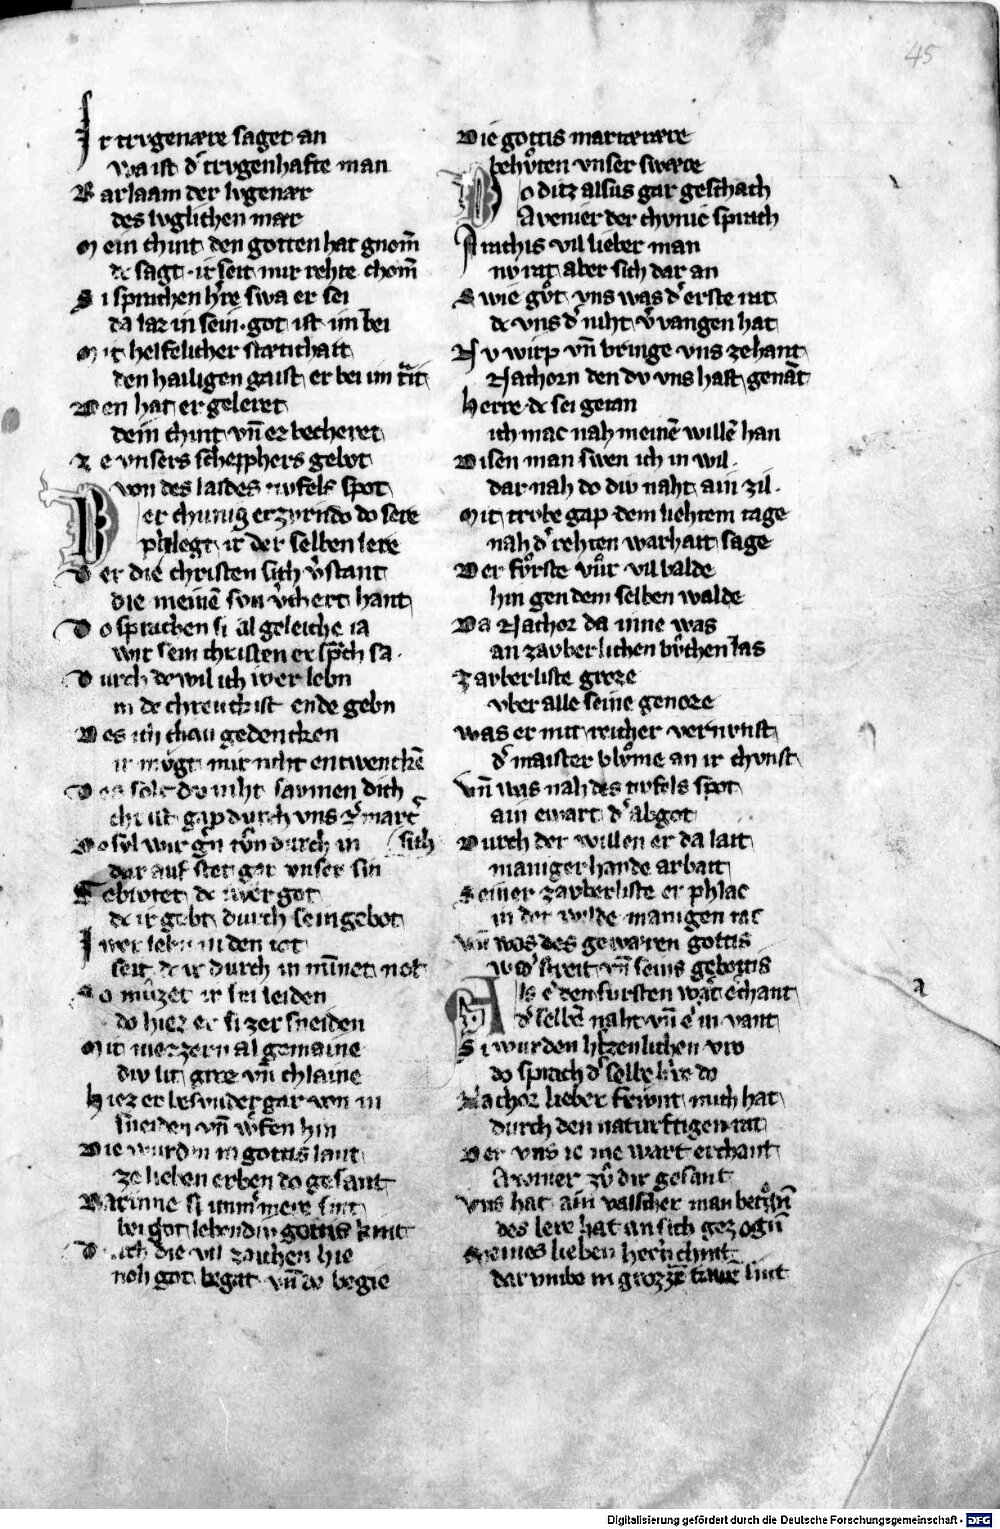 45
Ir trvgenære saget an
wa ist d' trvgenhafte man
Barlaam der lvgenær
des lvglichen mær
Mein chint den gotten hat gnom̄
dc sagt ir seit mir rehte chom̄
Si sprachen h're swa er sei
da laz in sein got ist im bei
Mit helfelicher stætichait
den hailigen gaist er bei im trait
Den hat er geleret
dein chint vn̄ ez becheret
Ze vnsers schepphers gebot
von des laides tivfels spot
Der chunig erzvrndo do sere
phlegt ir der selben lere
Der die christen sich v'stant
die meinē svn v'chert hant
Do sprachen si al geleiche ia
wir sein christen er sprach sa
Durch dc wil ich iwer lebn
in dc chreutz ist ende gebn
Des ich han gedencken
ir mvgt mir niht entwenckē
Des solt dv niht savmen dich
christ gap durch vns d' mart'
Do svl wir gern tvn durch in sich
dar auf stet gar vnser sin
Gebivtet dc iwer got
dc ir gebt durch sein gebot
Iwer lebn in den tot
seit dc ir durch in minnet not
So mvzet ir sin leiden
do hiez er si zersneiden
Mit mezzern al gemaine
div lit groze vn̄ chlaine
Hiez er besvnder gar von in
sneiden vn̄ w'fen hin
Die wurden in gottis lant
ze lieben erben do gesant
Darinne si immer mere sint
bei got lebendiv gottis kint
Durch die vil zaichen hie
noh got begat vn̄ do begie
Die gottis marterære
behvten vnser swære
Do ditz alsus gar geschach
Avenier der chvnic sprach
Arachis vil lieber man
nv rat aber sich dar an
Swie gvt vns was d' erste rat
dc vns d' niht v'vangen hat
Nv wirp vn̄ bringe vns zehant
Nachorn den dv vns hast genāt
Herre dc sei getan
ich mac nah meinē willē han
Disen man swen ich in wil
dar nah do div naht ain zil
Mit trvbe gap dem liehtem tage
nah d' rehten warhait sage
Der fvrste vur vil balde
hin gen dem selben walde
Da Nachor da inne was
an zavberlichen bvchen las
Zavberliste groze
vber alle seine genoze
Was er mit reicher vernvnst
d' maister blvme an ir chvnst
Vn̄ was nah des tivfels spot
ain ewart d' abgot
Durch der willen er da lait
maniger hande arbait
Seiner zavberliste er phlac
in der wilde manigen tac
Vn̄ was des gewaren gottis
wid' streit vn̄ seins gebottis
Als e' den fvrsten wart echant
d' selbē naht vn̄ e' in vant
Si wurden h'tzenlichen vro
do sprach d' selbe h're do
Nachor lieber frivnt mich hat
durch den naturftigen rat
Der vns ie me wart erchant
Avenier zv dir gesant
Vns hat ain valscher man betrogn̄
des lere hat an sich gezogn̄
Meines lieben herrn chint
dar vmbe in grozzē trawē sint
a
Digitalisierung gefördert durch die Deutsche Forschungsgemeinschaft - DFG